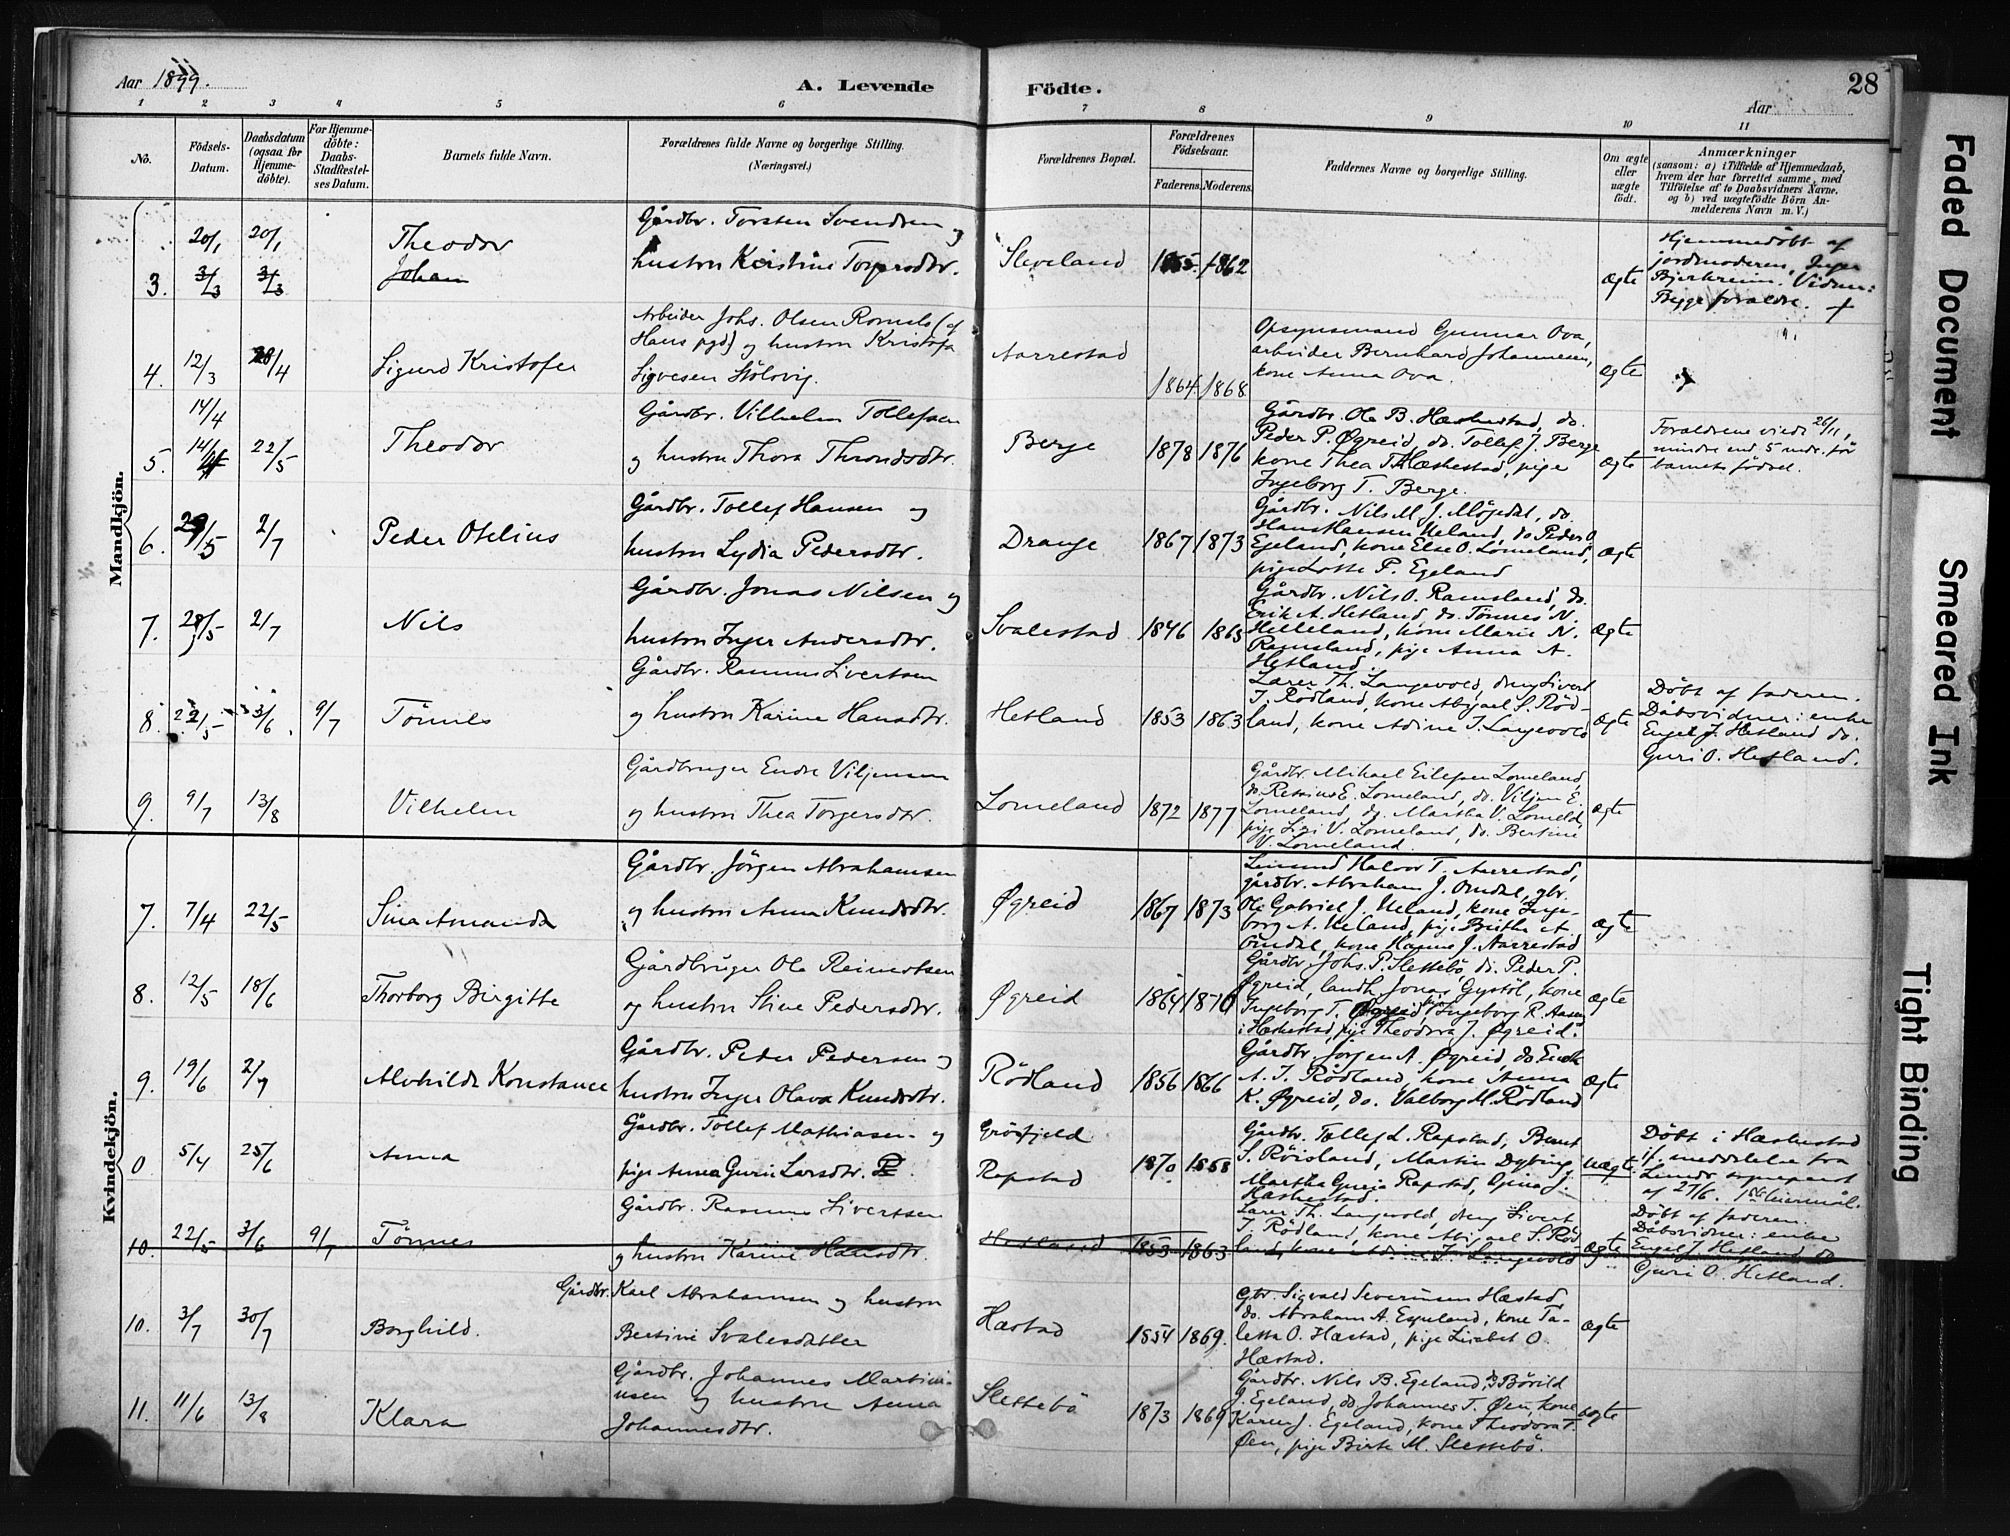 Aar 1899.
A. Levende
Födte.
28
Aar
1 2 3 4 5 6 7 8 9 10 11
No.
Födsels-Datum.
Daabsdatum (ogsaa for Hjemme-döbte).
For Hjemme-döbte: Daabs-Stadfæstel-ses Datum.
Barnets fulde Navn.
Forældrenes fulde Navne og borgerlige Stilling.
(Næringsvei.)
Forældrenes Bopæl.
Forældrenes Födselsaar.
Faderens.
Moderens.
Faddernes Navne og borgerlige Stilling.
Om ægte eller uægte födt.
Anmærkninger
(saasom: a) i Tilfælde af Hjemmedaab,
hvem der har forrettet samme, med
Tilföielse af to Daabsvidners Navne,
og b) ved uægtefödte Börn An-
melderens Navn m. V.)
Mandkjön.
3. 20/1 20/1 Theodor
3/3 3/3 Johan
Gårdbr. Torsten Svendsen og
hustru Kirstine Torgersdtr.
Sleveland 1855. 1862
ægte
Hjemmedöbt af
jordmoderen, Inger
Bjerkreim. Vidner:
Begge forældre. +
4. 12/3 28/4 Sigurd Kristofer
Arbeider Johs. Olsen Romsls (af
Haus pgd) og hustru Kristofa
Sigvesen Stölovig.
Aarrestad 1864 1868
Opsynsmand Gunnar Ova,
arbeider Bernhard Johannesen,
kone Anna Ova.
ægte
5. 14/4 14/4 22/5 Theodor
Gårdbr. Vilhelm Tollefsen
og hustru Thora Throndsdtr.
Berge 1878 1876
Gårdbr. Ole B. Hæskestad, do.
Peder P. Øgreid, do. Tollef J. Berge
kone Thea T. Hæskestad, pige
Ingeborg T. Berge.
ægte
Forældrene viede 26/11,
mindre end 5 mdr. för
barnets födsel.
6. 29/5 2/7 Peder Otelius
Gårdbr. Tollef Hansen og
hustru Lydia Pedersdtr.
Drange 1867 1873
Gårdbr. Nils M. J. Mögedal, do.
Hans Hansen Ueland, do Peder O.
Egeland, kone Else O. Lomeland,
pige Lotte P. Egeland
ægte
7. 28/5 2/7 Nils
Gårdbr. Jonas Nilsen og
hustru Inger Andersdtr.
Svalestad 1846 1865
Gårdbr. Nils O. Ramsland, do.
Erik A. Hetland, do. Tönnes N.
Helleland, kone Marie N.
Ramsland, pige Anna A.
Hetland.
ægte
8. 22/5 3/6 9/7 Tönnes
Gårdbr. Rasmus Sivertsen
og hustru Karine Hansdtr.
Hetland 1853 1863
Lærer Th. Langevold, dreng Sivert
I. Rödland, kone Abigael S. Röd-
land, kone Adine J. Langevold
ægte
Döbt af faderen.
Dåbsvidner: enke
Engel J. Hetland do.
Guri O. Hetland.
9. 9/7 13/8 Vilhelm
Gårdbruger Endre Viljensen
og hustru Thea Torgersdtr.
Lomeland 1872 1877
Gårdbr. Mikael Eilefsen Lomeland,
do. E. Lomeland, do. Viljen E.
Lomeland, do. Martha V. Lomeld,
pige Siri V. Lomeland, do. Bertine
V. Lomeland.
ægte
Kvindekjön.
7. 7/4 22/5 Sina Amanda
Gårdbr. Jörgen Abrahamsen
og hustru Anna Knudsdtr.
Øgreid 1867 1873
Lensmd Halvor T. Aarrestad,
gårdbr. Abraham J. Omdal, gbr.
Ole Gabriel J. Ueland, kone Inge-
borg A. Ueland, pige Birthe A.
Omdal, kone Hanne J. Aarrestad
ægte
8. 12/5 18/6 Thorborg Birgitte
Gårdbruger Ole Reinertsen
og hustru Stine Pedersdtr.
Øgreid 1864 1870
Gårdbr. Johs. P. Slettebö, do. Peder P.
Øgreid, landh. Jonas Gystöl, kone
Ingeborg T. Øgreid, pige Ingeborg R. Aasen
i Hæskestad, pige Theodora J. Øgreid.
ægte
9. 19/6 2/7 Alvhilde Konstance
Gårdbr. Peder Pedersen og
hustru Inger Olava Knudsdtr.
Rödland 1856 1866
Gårdbr. Jörgen A. Øgreid, do Enok
A. I. Rödland, kone Anna
K. Øgreid, do. Valborg M. Rödland
ægte
0 5/4 25/6 Anna
Gårdbr. Tollef Mathiasen og
pige Anna Guri Larsdtr.
Grösfjeld
Rapstad
1870 1858
Gårdbr. Tollef L. Rapstad, Bernt
S. Röisland, Martin Dybing,
Martha Gurja Rapstad, Gjina J.
Hæskestad.
uægte.
Döbt i Hæskestad
if. meddelelse fra
Lunds sogneprest
af 27/6. 1ste leiermål.
10. 22/5 3/6 9/7 Tönnes
Gårdbr. Rasmus Sivertsen
og hustru Karine Hansdtr.
Hetland 1853 1863
Lærer Th. Langevold, dreng Sivert
I. Rödland, kone Abigael S. Röd-
land, kone Adine J. Langevold
ægte
Döbt af faderen.
Dåbsvidner: enke
Engel J. Hetland do
Guri O. Hetland.
10. 3/7 30/7 Borghild.
Gårdbr. Karl Abrahamsen og hustru
Bertine Svalesdatter
Hæstad 1854 1869.
Gbr. Sigvald Severinsen Hæstad,
do. Abraham A. Egeland, kone Ta-
letta O. Hæstad, pige Lisabet O.
Hæstad.
ægte
11. 11/6 13/8 Klara
Gårdbr. Johannes Martin-
usen og hustru Anna
Johannesdtr.
Slettebö 1873 1869
Gårdbr. Nils B. Egeland, do Börild
J. Egeland, do Johannes T. Øen, kone
Karen J. Egeland, kone Theodora T.
Øen, pige Birte M. Slettebö.
ægte
Faded Document
Smeared Ink
Tight Binding